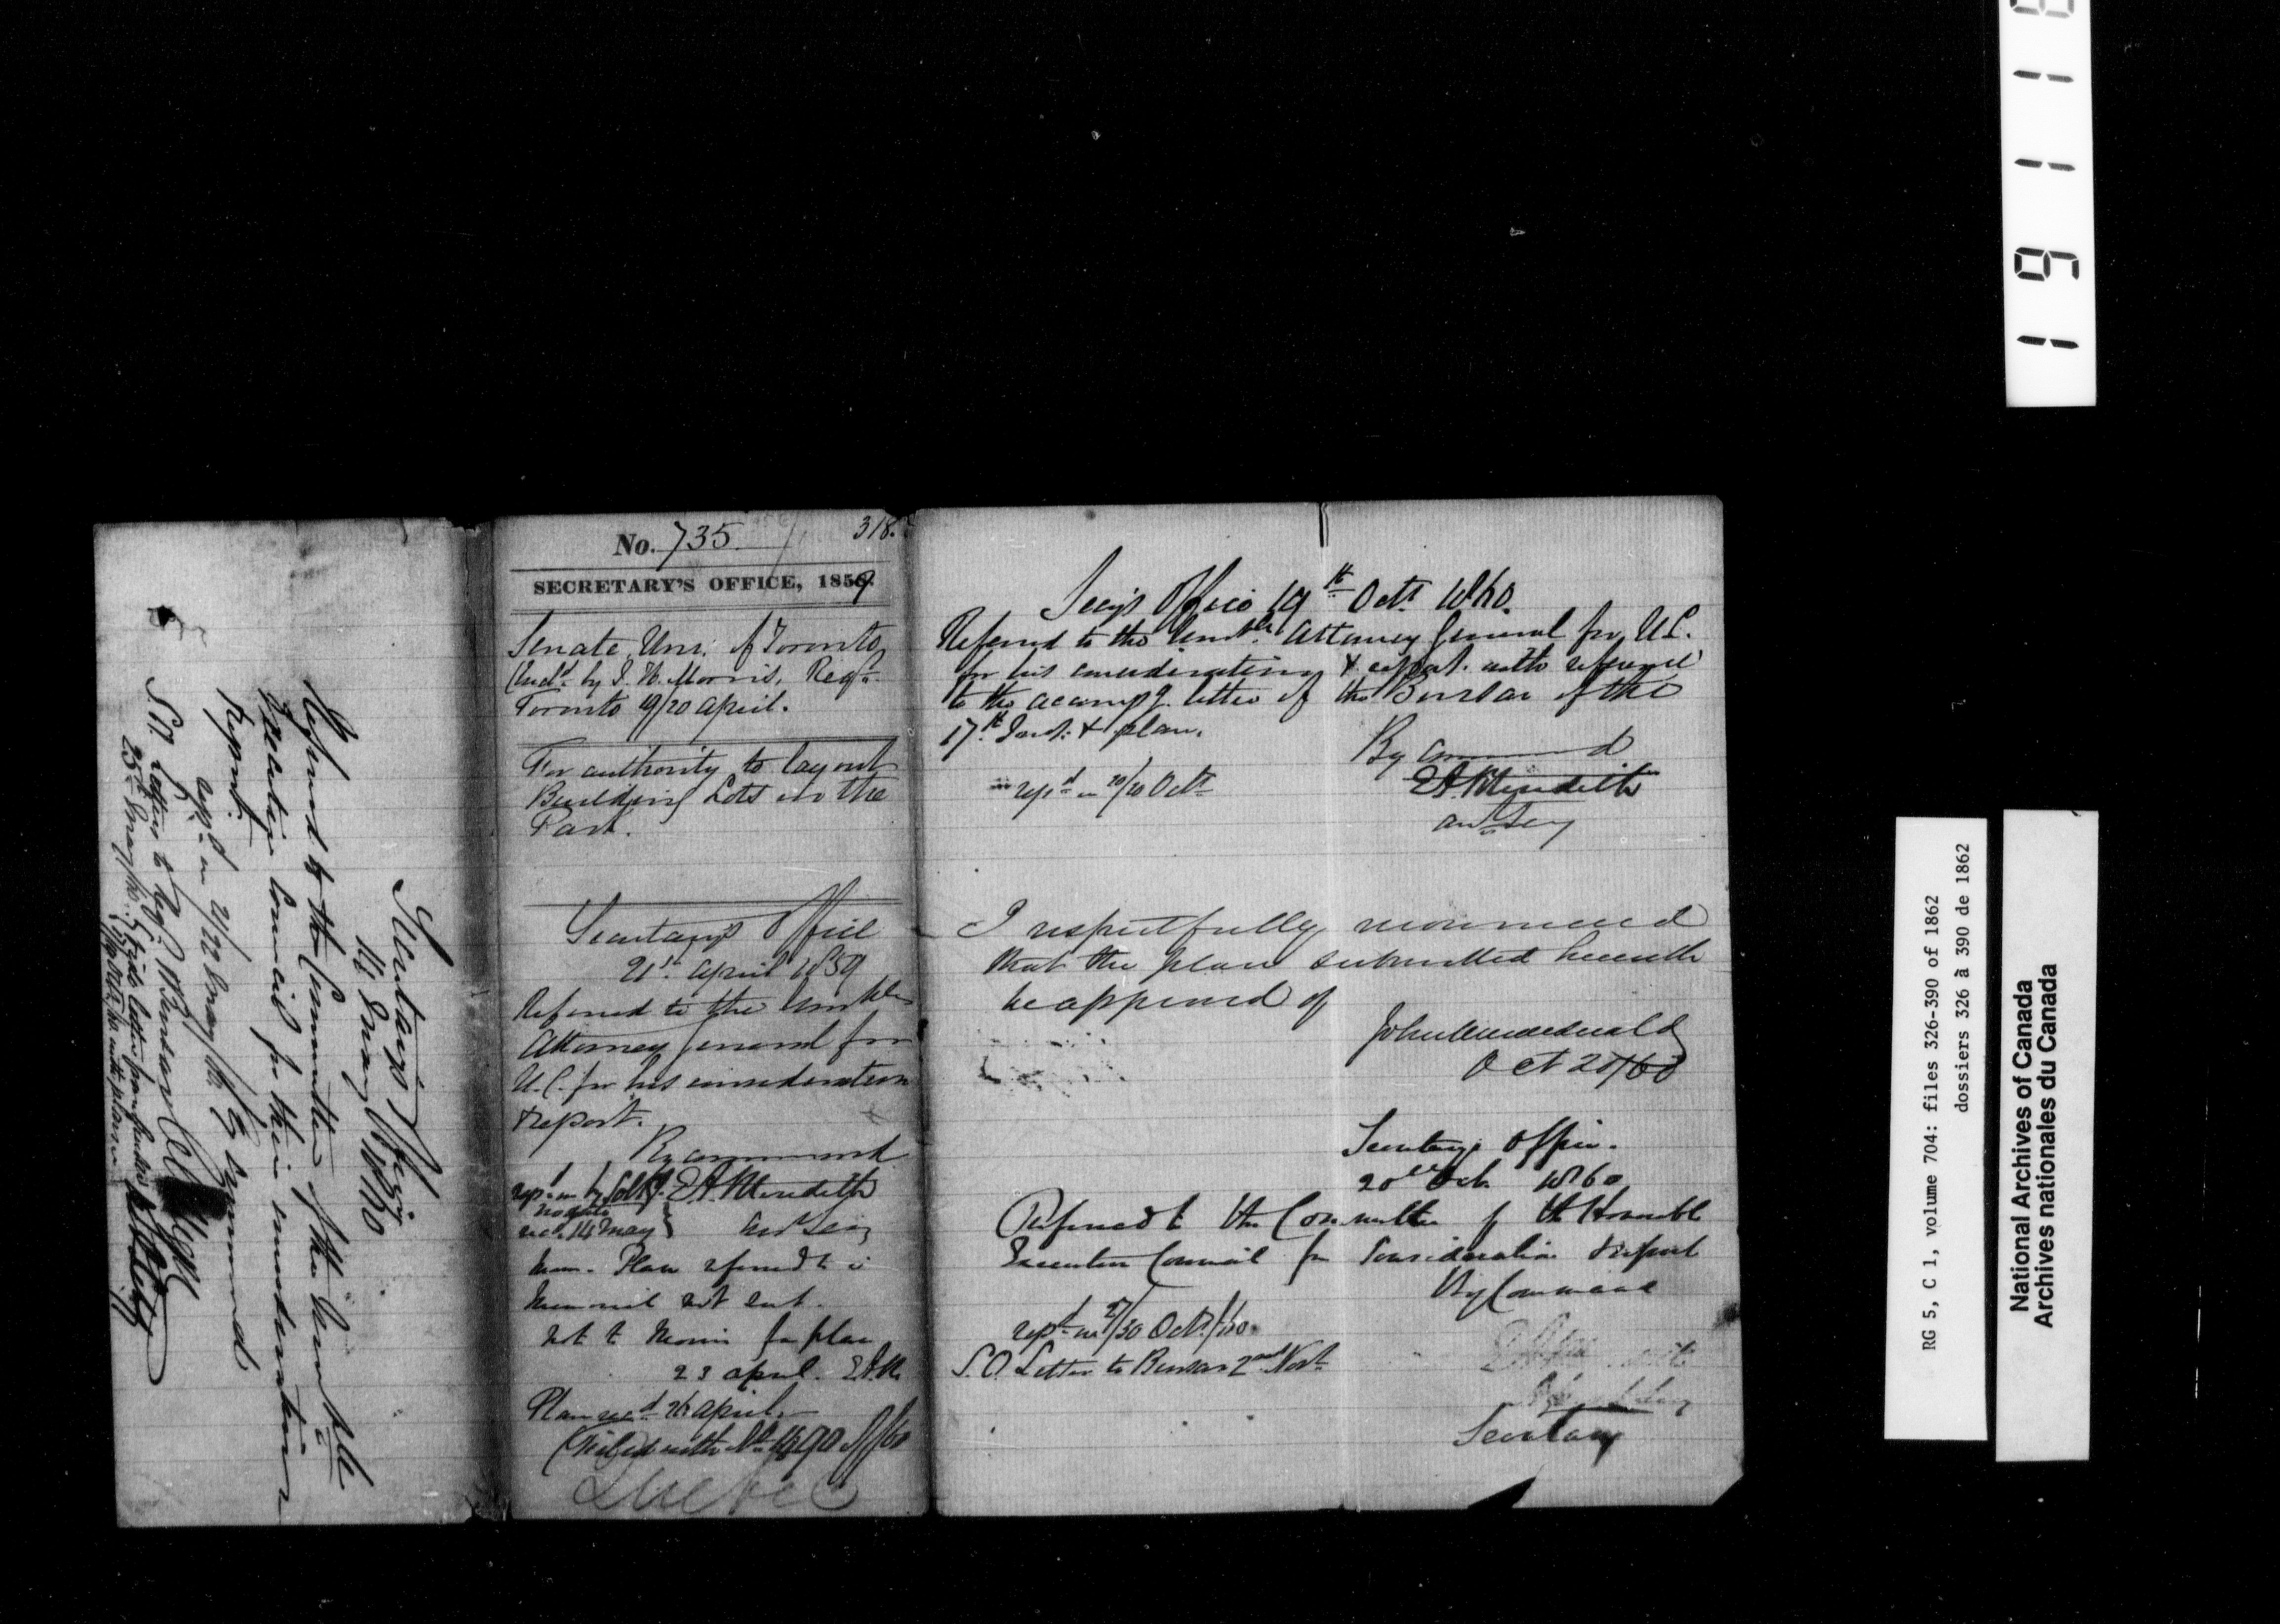 No. 735.
318.
SECRETARY'S OFFICE, 1859.
Senate, Univ. of Toronto,
(Encl.d by J. H. Morris, Reg.r
Toronto 19/20 April.
For authority to lay out
Building Lots in the
Park.
Secretary's Office
21st April 1859
Referred to the Honble
Attorney General for
U.C. for his consideration
& report.
By command
E A Meredith
Asst Secy
recd 14 May
Mem. Plan referred to in
Memorial not sent.
Morris for plan
23 April. E.A.M.
Plan recd 26 April.
(Filed with No 1690 of /60
Quebec
Secretary's Office
16 May 1860
Referred to the Committee of the Honble
Executive Council for their consideration
& report.
21/22 May /60
By command
S.O. Letter to Bursar
25th May /60
Secy's Office 19th Octr 1860.
Referred to the Honble Attorney General for U.C.
for his consideration & report with reference
to the accompg. letter of the Bursar of the
17th Inst. & plan.
By command
E A Meredith
Asst Secy
repd in 20/20 Octr
I respectfully recommend
that the plan submitted herewith
be approved of
John A Macdonald
Oct 20/60
Secretary's Office.
20th Oct. 1860
Referred to the Committee of the Honorable
Executive Council for Consideration & report
By Command
repd in 27/30 Octr/60.
S.O. Letter to Bursar 2nd Novr
Secretary
19118
RG 5, C 1, volume 704: files 326-390 of 1862
dossiers 326 à 390 de 1862
National Archives of Canada
Archives nationales du Canada